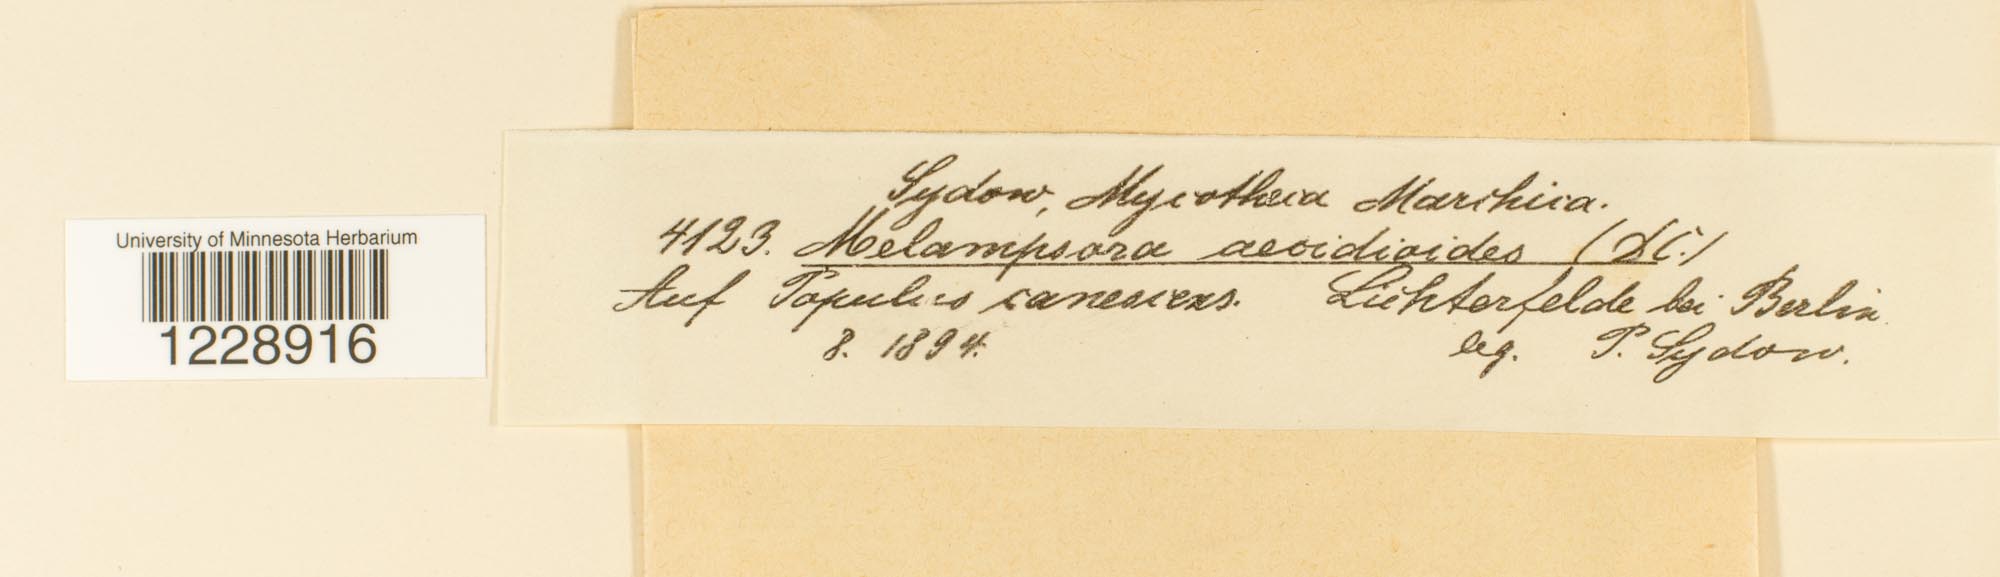 University of Minnesota Herbarium
1228916
Sydow, Mycotheca Marchica.
4123. Melampsora aecidioides (DC.)
Auf Populus canescens. Lichterfelde bei Berlin.
8. 1894. leg. P. Sydow.